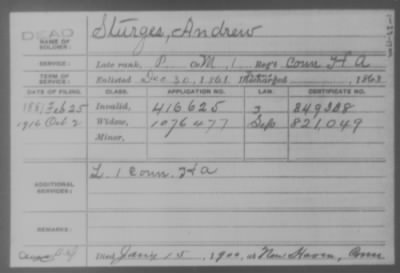 DEAD
NAME OF SOLDIER: Sturges, Andrew
SERVICE: Late rank, P. Co M, 1 Reg't Conn H A
TERM OF SERVICE: Enlisted Dec 30, 1861. Discharged , 1863
DATE OF FILING. CLASS. APPLICATION NO. LAW. CERTIFICATE NO.
1887 Feb 25 Invalid, 416625 849328
1916 Oct 2 Widow, 1076477 Sep 8 821049
Minor,
ADDITIONAL SERVICES: L. 1 Conn. H A
REMARKS:
Died Jany 15, 1900, at New Haven, Conn